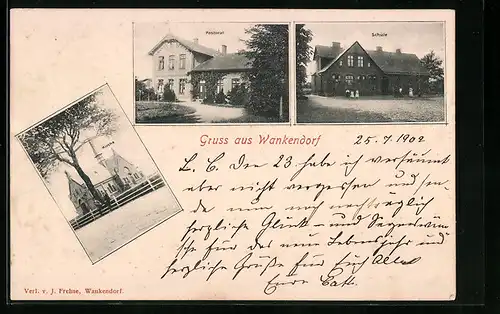 Pastorat
Schule
Kirche
Gruss aus Wankendorf
25.7.1902
L. C. Den 23 habe ich versäumt
aber nicht vergessen und sen-
de nun noch nachträglich
herzliche Glück- und Segenswün-
sche für das neue Lebensjahr und
herzliche Grüße für Euch Alle
Eure Cath.
Verl. v. J. Prehse, Wankendorf.